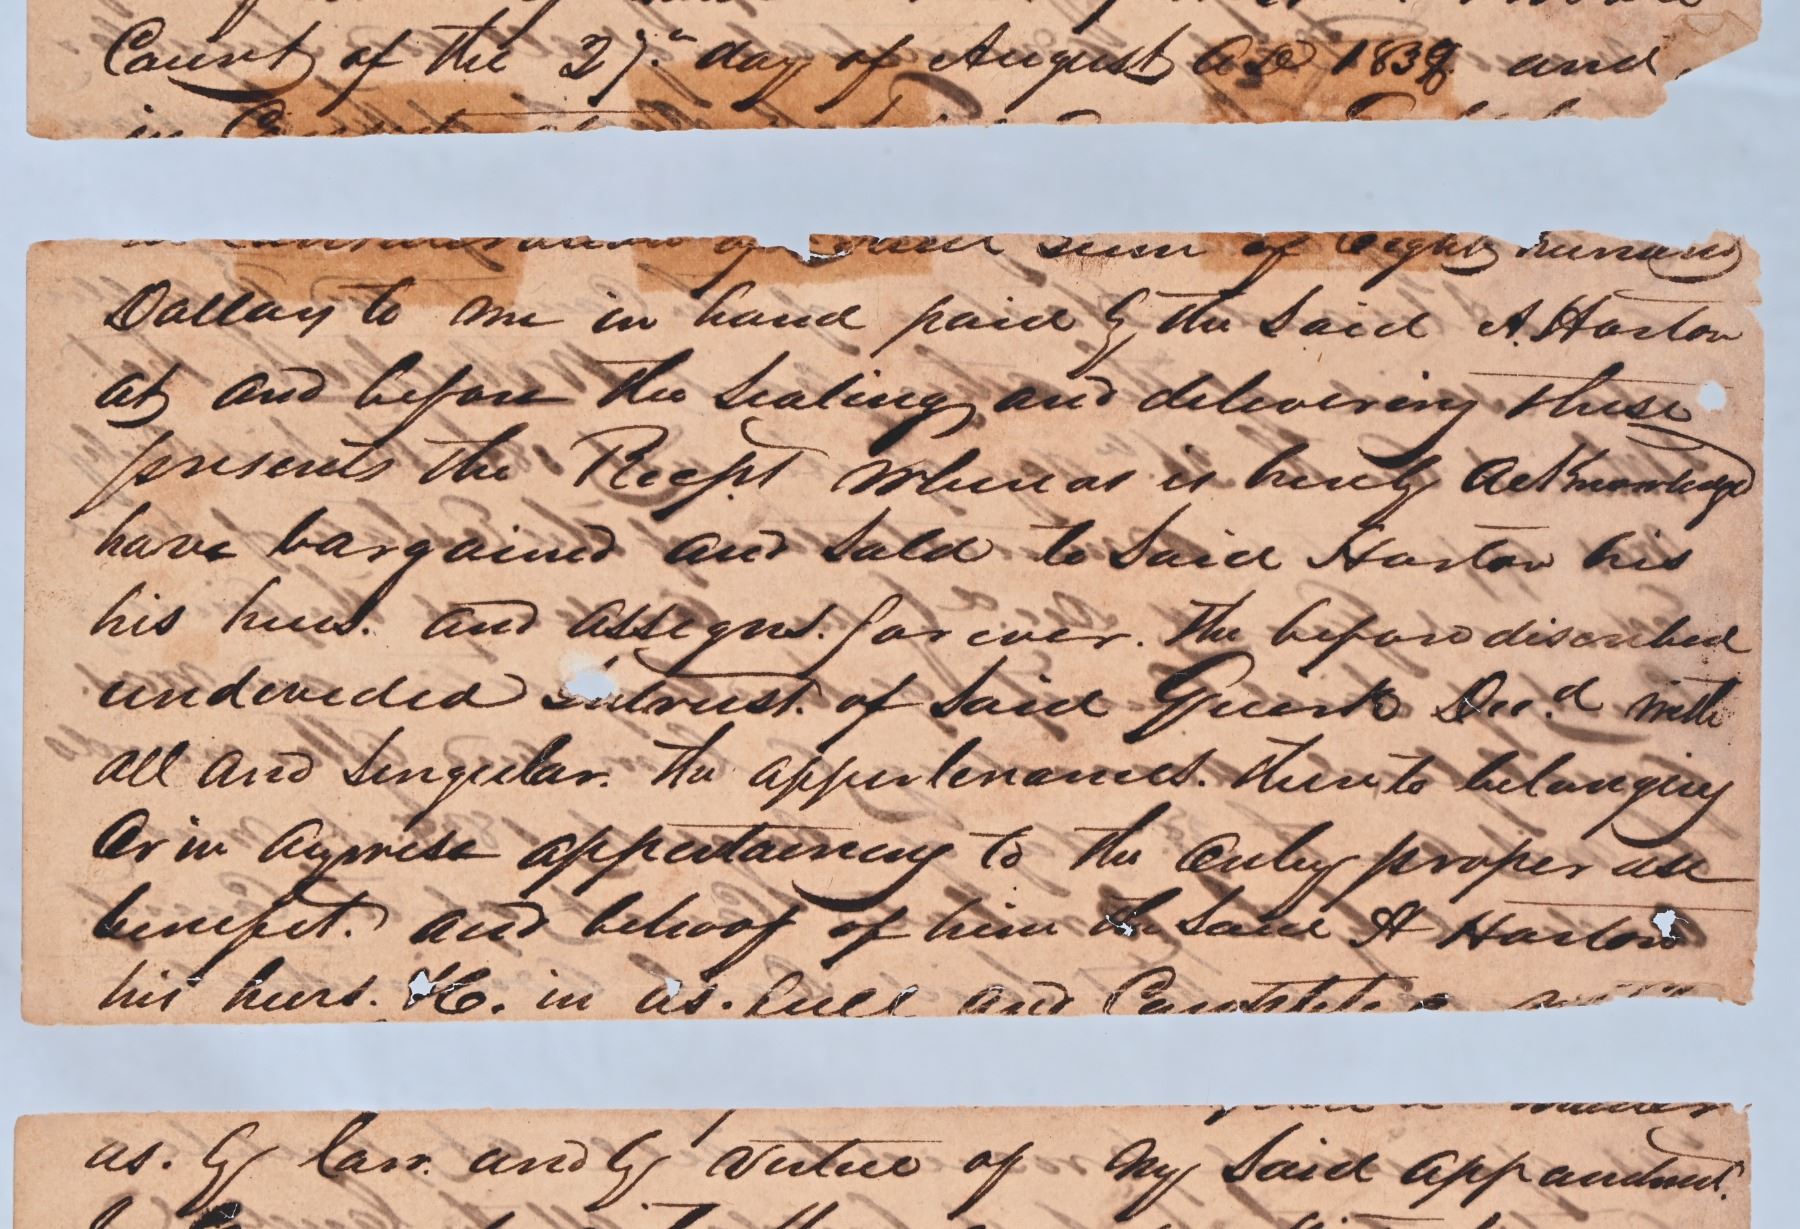 Court of the 27th day of August AD 1839 and
in Consideration of said sum of Eight hundred
Dollars to me in hand paid by the Said A. Harlow
at and before the Sealing and delivering these
presents the Recept Whereas is herely acknowledged
have bargained and Sold to Said Harlow his
his heirs. and assegns. forever. the before discribed
undeveded intrust. of Said Queirk Decd. with
all and Singular. the appertenances. thereto belonging
Or in aywise appertaining to the Onley proper use
benefit. and behoof of him the Said A Harlow
his heirs. &C. in as. full and
as. by law. and by Virtue of My Said appointment.